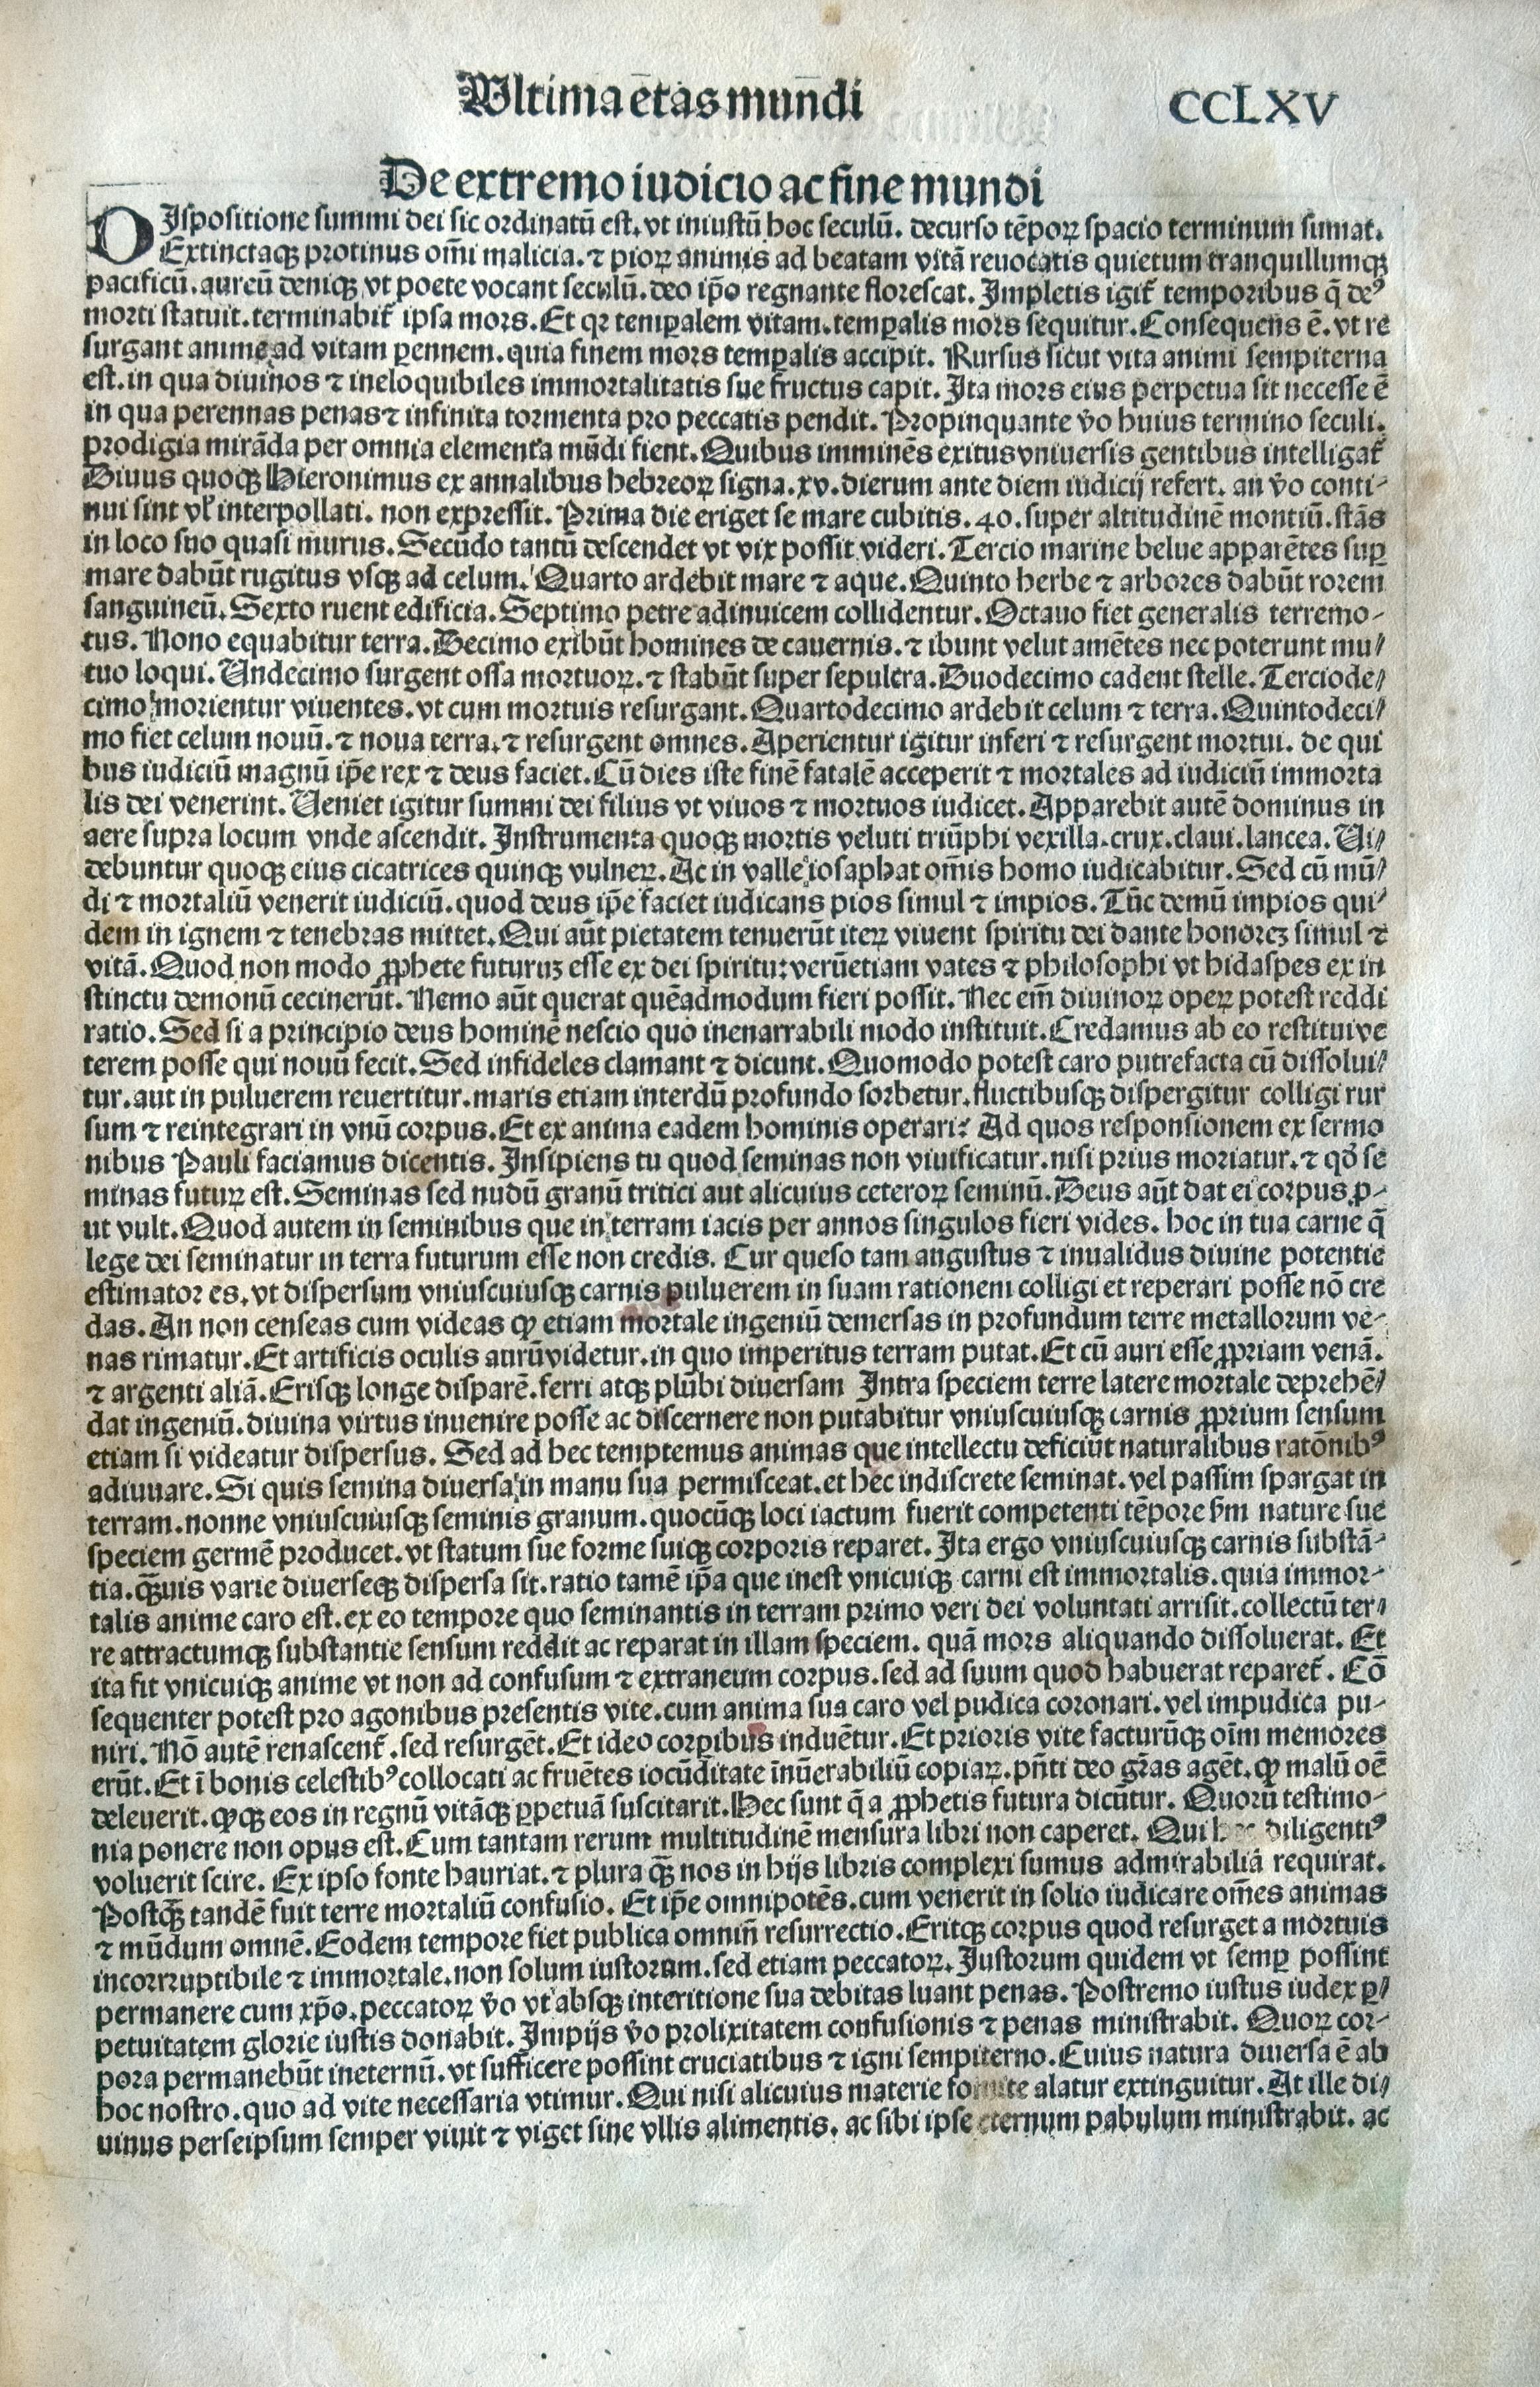 Vltima ētas mundi CCLXV
De extremo iudicio ac fine mundi
DIspositione summi dei sic ordinatū est. vt iniustū hoc seculū. decurso tēporꝝ spacio terminum sumat.
Extinctaqꝫ protinus om̄i malicia. ⁊ piorꝝ animis ad beatam vitā reuocatis quietum tranquillumqꝫ
pacificū. aureū deniqꝫ vt poete vocant seculū. deo ip̄o regnante florescat. Impletis igit᷑ temporibus q̄ deꝰ
morti statuit. terminabit᷑ ipsa mors. Et qꝛ temꝑalem vitam. temꝑalis mors sequitur. Consequens ē. vt re
surgant anime ad vitam ꝑennem. quia finem mors temꝑalis accipit. Rursus sicut vita animi sempiterna
est. in qua diuinos ⁊ ineloquibiles immortalitatis sue fructus capit. Ita mors eius perpetua sit necesse ē
in qua perennas penas ⁊ infinita tormenta pro peccatis pendit. Propinquante v̄o huius termino seculi.
prodigia mirāda per omnia elementa mūdi fient. Quibus imminēs exitus vniuersis gentibus intelligat᷑
Diuus quoqꝫ Hieronimus ex annalibus hebreorꝝ signa. xv. dierum ante diem iudicij refert. an v̄o conti-
nui sint vl̓ interpollati. non expressit. Prima die eriget se mare cubitis. 40. super altitudinē montiū. stās
in loco suo quasi murus. Secūdo tantū descendet vt vix possit videri. Tercio marine belue apparētes suꝑ
mare dabūt rugitus vsqꝫ ad celum. Quarto ardebit mare ⁊ aque. Quinto herbe ⁊ arbores dabūt rorem
sanguineū. Sexto ruent edificia. Septimo petre adinuicem collidentur. Octauo fiet generalis terremo-
tus. Nono equabitur terra. Decimo exibūt homines de cauernis. ⁊ ibunt velut amētes nec poterunt mu/
tuo loqui. Undecimo surgent ossa mortuorꝝ. ⁊ stabūt super sepulcra. Duodecimo cadent stelle. Terciode/
cimo morientur viuentes. vt cum mortuis resurgant. Quartodecimo ardebit celum ⁊ terra. Quintodeci/
mo fiet celum nouū. ⁊ noua terra. ⁊ resurgent omnes. Aperientur igitur inferi ⁊ resurgent mortui. de qui
bus iudiciū magnū ip̄e rex ⁊ deus faciet. Cū dies iste finē fatalē acceperit ⁊ mortales ad iudiciū immorta
lis dei venerint. Ueniet igitur summi dei filius vt viuos ⁊ mortuos iudicet. Apparebit autē dominus in
aere supra locum vnde ascendit. Instrumenta quoqꝫ mortis veluti triūphi vexilla. crux. claui. lancea. Ui/
debuntur quoqꝫ eius cicatrices quinqꝫ vulnerꝝ. Ac in valle iosaphat om̄is homo iudicabitur. Sed cū mū/
di ⁊ mortaliū venerit iudiciū. quod deus ip̄e faciet iudicans pios simul ⁊ impios. Tūc demū impios qui/
dem in ignem ⁊ tenebras mittet. Qui aūt pietatem tenuerūt iterꝝ viuent spiritu dei dante honorēꝫ simul ⁊
vitā. Quod non modo ꝓphete futurūꝫ esse ex dei spiritu: verūetiam vates ⁊ philosophi vt hidaspes ex in
stinctu demonū cecinerūt. Nemo aūt querat quēadmodum fieri possit. Nec em̄ diuinorꝝ operꝝ potest reddi
ratio. Sed si a principio deus hominē nescio quo inenarrabili modo instituit. Credamus ab eo restitui ve
terem posse qui nouū fecit. Sed infideles clamant ⁊ dicunt. Quomodo potest caro putrefacta cū dissolui/
tur. aut in puluerem reuertitur. maris etiam interdū profundo sorbetur. fluctibusqꝫ dispergitur colligi rur
sum ⁊ reintegrari in vnū corpus. Et ex anima eadem hominis operari? Ad quos responsionem ex sermo
nibus Pauli faciamus dicentis. Insipiens tu quod seminas non viuificatur. nisi prius moriatur. ⁊ qd̄ se
minas futurꝝ est. Seminas sed nudū granū tritici aut alicuius ceterorꝝ seminū. Deus aūt dat ei corpus ꝓ-
ut vult. Quod autem in seminibus que in terram iacis per annos singulos fieri vides. hoc in tua carne q̄
lege dei seminatur in terra futurum esse non credis. Cur queso tam angustus ⁊ inualidus diuine potentie
estimator es. vt dispersum vniuscuiusqꝫ carnis puluerem in suam rationem colligi et reperari posse nō cre
das. An non censeas cum videas ꝙ etiam mortale ingeniū demersas in profundum terre metallorum ve-
nas rimatur. Et artificis oculis aurū videtur. in quo imperitus terram putat. Et cū auri esse ꝓpriam venā.
⁊ argenti aliā. Erisqꝫ longe disparē. ferri atqꝫ plūbi diuersam Intra speciem terre latere mortale deprehē/
dat ingeniū. diuina virtus inuenire posse ac discernere non putabitur vniuscuiusqꝫ carnis ꝓprium sensum
etiam si videatur dispersus. Sed ad hec temptemus animas que intellectu deficiūt naturalibus ratōnibꝰ
adiuuare. Si quis semina diuersa in manu sua permisceat. et hec indiscrete seminat. vel passim spargat in
terram. nonne vniuscuiusqꝫ seminis granum. quocūqꝫ loci iactum fuerit competenti tēpore ẜm nature sue
speciem germē producet. vt statum sue forme suiqꝫ corporis reparet. Ita ergo vniuscuiusqꝫ carnis substā-
tia. qꝫ̄uis varie diuerseqꝫ dispersa sit. ratio tamē ip̄a que inest vnicuiqꝫ carni est immortalis. quia immor-
talis anime caro est. ex eo tempore quo seminantis in terram primo veri dei voluntati arrisit. collectū ter/
re attractumqꝫ substantie sensum reddit ac reparat in illam speciem. quā mors aliquando dissoluerat. Et
ita fit vnicuiqꝫ anime vt non ad confusum ⁊ extraneum corpus. sed ad suum quod habuerat reparet᷑. Cō
sequenter potest pro agonibus presentis vite. cum anima sua caro vel pudica coronari. vel impudica pu-
niri. Nō autē renascent᷑. sed resurgēt. Et ideo corꝑibus induētur. Et prioris vite facturūqꝫ oīm memores
erūt. Et ī bonis celestibꝰ collocati ac fruētes iocūditate īnūerabiliū copiarꝝ. pn̄ti deo gr̄as agēt. ꝙ malū oē
deleuerit. ꝙqꝫ eos in regnū vitāqꝫ ꝑpetuā suscitarit. Hec sunt q̄ a ꝓphetis futura dicūtur. Quorū testimo-
nia ponere non opus est. Cum tantam rerum multitudinē mensura libri non caperet. Qui diligentiꝰ
voluerit scire. Ex ipso fonte hauriat. ⁊ plura qꝫ̄ nos in hijs libris complexi sumus admirabiliā requirat.
Postqꝫ̄ tandē fuit terre mortaliū confusio. Et ip̄e omnipotēs. cum venerit in solio iudicare om̄es animas
⁊ mūdum omnē. Eodem tempore fiet publica omniū resurrectio. Eritqꝫ corpus quod resurget a mortuis
incorruptibile ⁊ immortale. non solum iustorum. sed etiam peccatorꝝ. Iustorum quidem vt semꝑ possint
permanere cum xp̄o. peccatorꝝ v̄o vt absqꝫ interitione sua debitas luant penas. Postremo iustus iudex ꝑ/
petuitatem glorie iustis donabit. Impijs v̄o prolixitatem confusionis ⁊ penas ministrabit. Quorꝝ cor-
pora permanebūt ineternū. vt sufficere possint cruciatibus ⁊ igni sempiterno. Cuius natura diuersa ē ab
hoc nostro. quo ad vite necessaria vtimur. Qui nisi alicuius materie alatur extinguitur. At ille di/
uinus perseipsum semper viuit ⁊ viget sine vllis alimentis. ac sibi ipse eternum pabulum ministrabit. ac